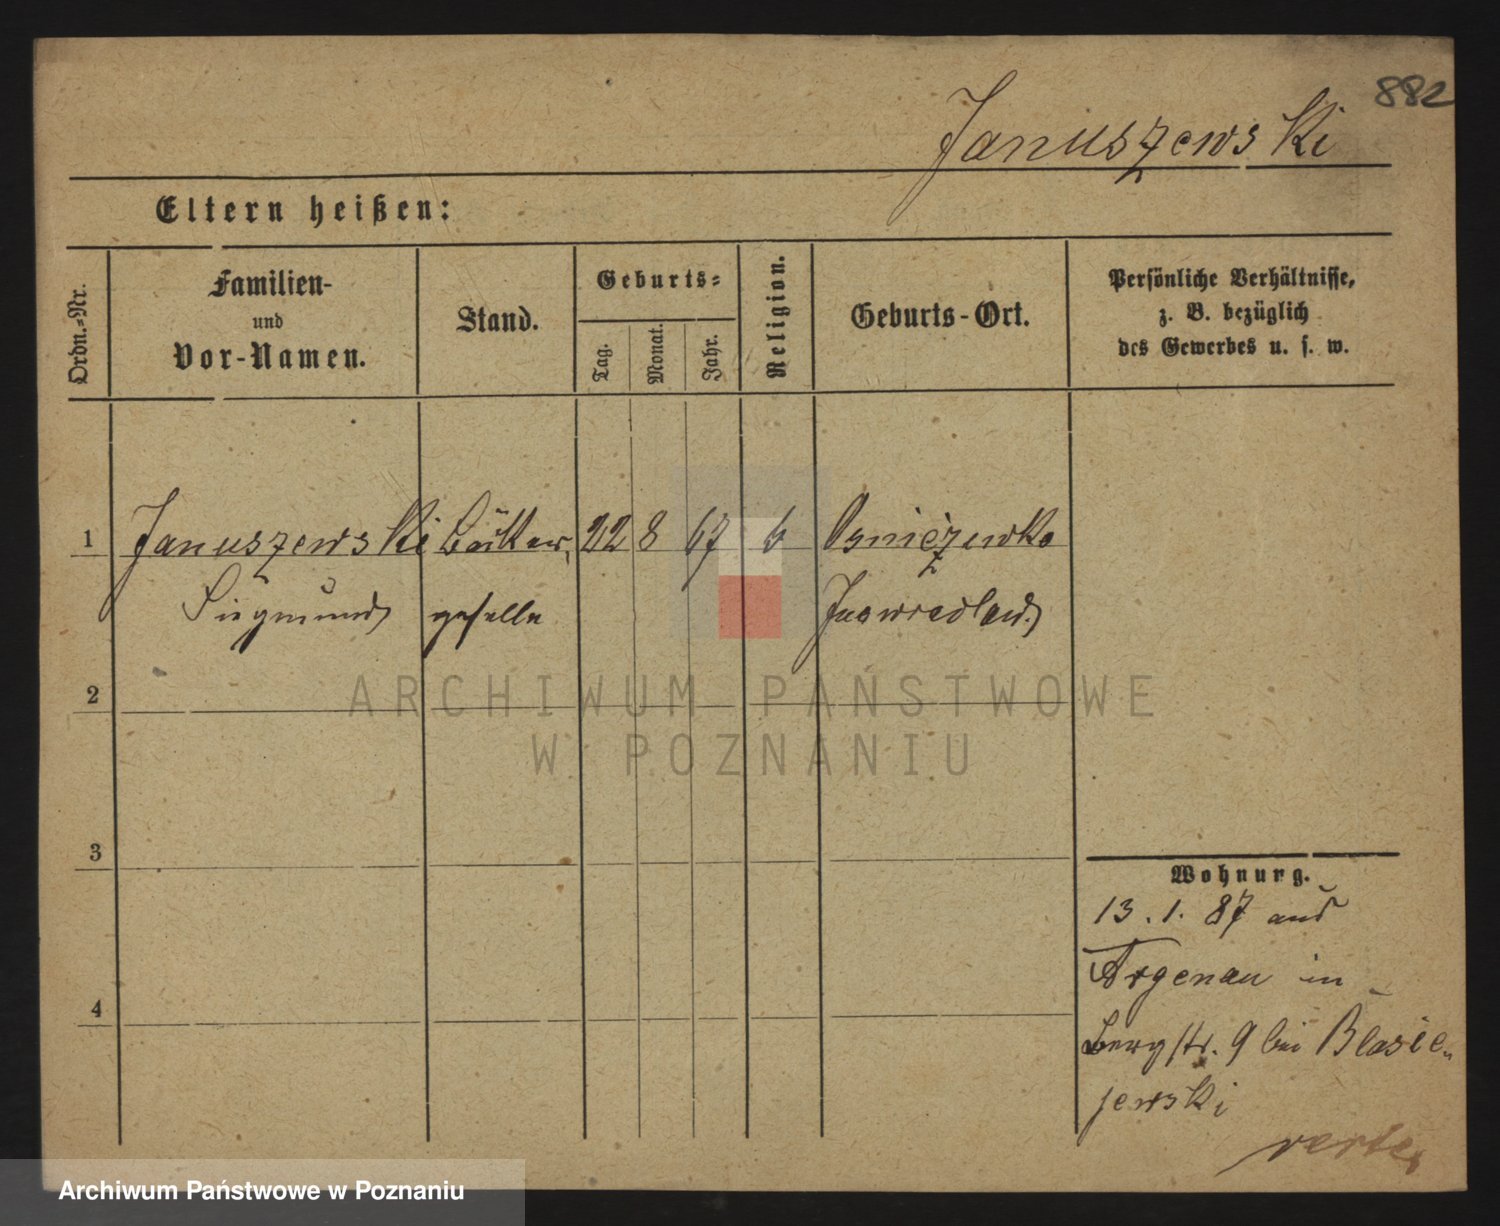 882
Januszewski
Eltern heißen:
Ordn.=Nr.
Familien-
und
Vor-Namen.
Stand.
Geburts=
Tag.
Monat.
Jahr.
Religion.
Geburts-Ort.
Persönliche Verhältnisse,
z. B. bezüglich
des Gewerbes u. s. w.
1 Januszewski 22 8 67
Siegmund geselle
ARCHIWUM PAŃSTWOWE
W POZNANIU
2
3
4
Wohnung.
13. 1. 87 aus
Argenau in
Bergstr. 9 bei Blasie„
jewski
verte
Archiwum Państwowe w Poznaniu